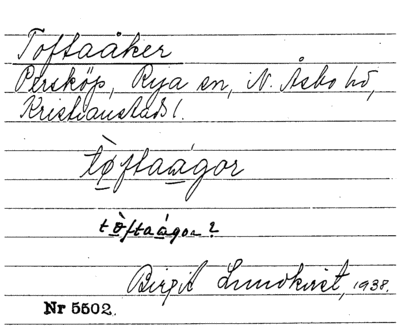 Toftaåker
Persköp, Rya sn, N. Åsbo hd,
Kristianstads l.
tø̀ftaágor
tø̀ftaágor?
Birgit Lundkvist, 1938.
Nr 5502.